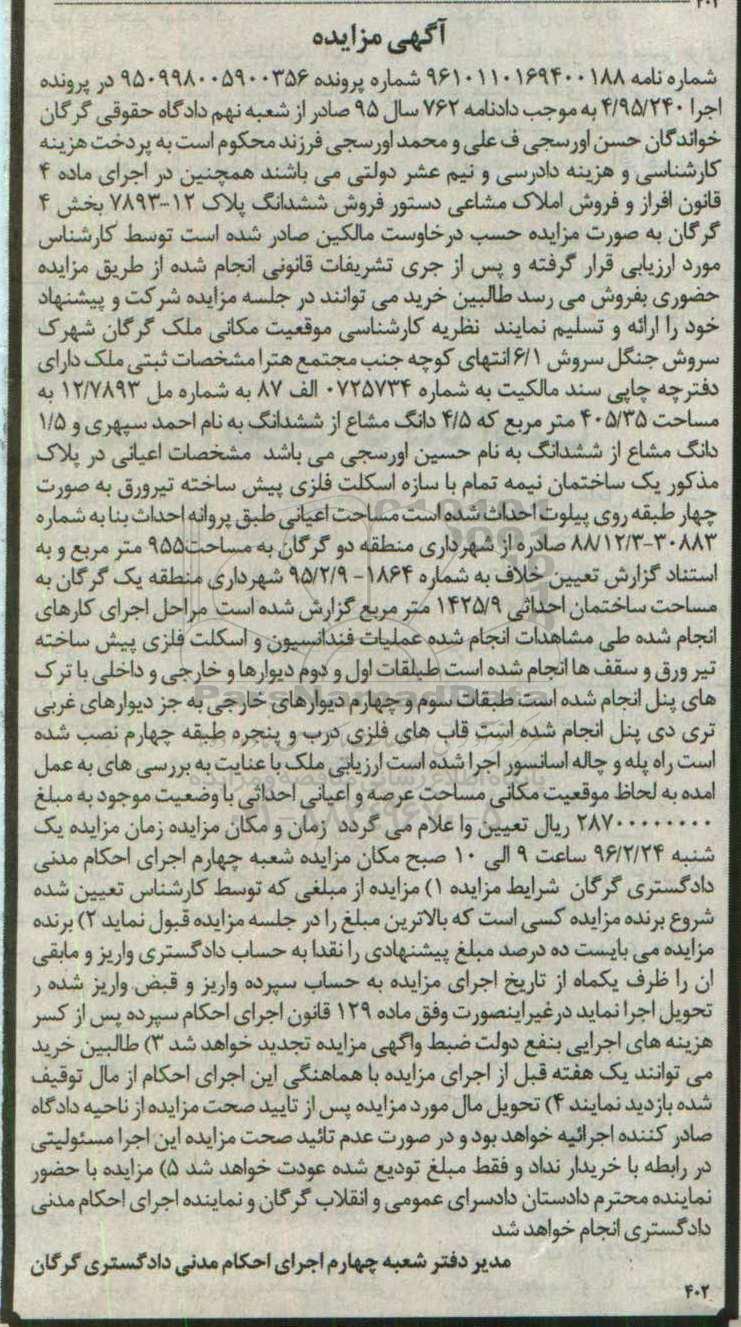 ۴۰۲
آگهی مزایده
شماره نامه ۹۶۱۰۱۱۰۱۶۹۴۰۰۱۸۸ شماره پرونده ۹۵۰۹۹۸۰۰۵۹۰۰۳۵۶ در پرونده
اجرا ۴/۹۵/۲۴۰ به موجب دادنامه ۷۶۲ سال ۹۵ صادر از شعبه نهم دادگاه حقوقی گرگان
خواندگان حسن اورسجی ف علی و محمد اورسجی فرزند محکوم است به پردخت هزینه
کارشناسی و هزینه دادرسی و نیم عشر دولتی می باشند همچنین در اجرای ماده ۴
قانون افراز و فروش املاک مشاعی دستور فروش ششدانگ پلاک ۱۲-۷۸۹۳ بخش ۴
گرگان به صورت مزایده حسب درخاوست مالکین صادر شده است توسط کارشناس
مورد ارزیابی قرار گرفته و پس از جری تشریفات قانونی انجام شده از طریق مزایده
حضوری بفروش می رسد طالبین خرید می توانند در جلسه مزایده شرکت و پیشنهاد
خود را ارائه و تسلیم نمایند نظریه کارشناسی موقعیت مکانی ملک گرگان شهرک
سروش جنگل سروش ۶/۱ انتهای کوچه جنب مجتمع هترا مشخصات ثبتی ملک دارای
دفترچه چاپی سند مالکیت به شماره ۰۷۲۵۷۳۴ الف ۸۷ به شماره مل ۱۲/۷۸۹۳ به
مساحت ۴۰۵/۳۵ متر مربع که ۴/۵ دانگ مشاع از ششدانگ به نام احمد سپهری و ۱/۵
دانگ مشاع از ششدانگ به نام حسین اورسجی می باشد مشخصات اعیانی در پلاک
مذکور یک ساختمان نیمه تمام با سازه اسکلت فلزی پیش ساخته تیرورق به صورت
چهار طبقه روی پیلوت احداث شده است مساحت اعیانی طبق پروانه احداث بنا به شماره
۳۰۸۸۳-۸۸/۱۲/۳ صادره از شهرداری منطقه دو گرگان به مساحت ۹۵۵ متر مربع و به
استناد گزارش تعیین خلاف به شماره ۱۸۶۴- ۹۵/۲/۹ شهرداری منطقه یک گرگان به
مساحت ساختمان احداثی ۱۴۲۵/۹ متر مربع گزارش شده است مراحل اجرای کارهای
انجام شده طی مشاهدات انجام شده عملیات فندانسیون و اسکلت فلزی پیش ساخته
تیر ورق و سقف ها انجام شده است طبلقات اول و دوم دیوارها و خارجی و داخلی با ترک
های پنل انجام شده است طبقات سوم و چهارم دیوارهای خارجی به جز دیوارهای غربی
تری دی پنل انجام شده است قاب های فلزی درب و پنجره طبقه چهارم نصب شده
است راه پله و چاله اسانسور اجرا شده است ارزیابی ملک با عنایت به بررسی های به عمل
امده به لحاظ موقعیت مکانی مساحت عرصه و اعیانی احداثی با وضعیت موجود به مبلغ
۲۸۷۰۰۰۰۰۰۰۰ ریال تعیین وا علام می گردد زمان و مکان مزایده زمان مزایده یک
شنبه ۹۶/۲/۲۴ ساعت ۹ الی ۱۰ صبح مکان مزایده شعبه چهارم اجرای احکام مدنی
دادگستری گرگان شرایط مزایده ۱) مزایده از مبلغی که توسط کارشناس تعیین شده
شروع برنده مزایده کسی است که بالاترین مبلغ را در جلسه مزایده قبول نماید ۲) برنده
مزایده می بایست ده درصد مبلغ پیشنهادی را نقدا به حساب دادگستری واریز و مابقی
ان را ظرف یکماه از تاریخ اجرای مزایده به حساب سپرده واریز و قبض واریز شده ر
تحویل اجرا نماید درغیراینصورت وفق ماده ۱۲۹ قانون اجرای احکام سپرده پس از کسر
هزینه های اجرایی بنفع دولت ضبط واگهی مزایده تجدید خواهد شد ۳) طالبین خرید
می توانند یک هفته قبل از اجرای مزایده با هماهنگی این اجرای احکام از مال توقیف
شده بازدید نمایند ۴) تحویل مال مورد مزایده پس از تایید صحت مزایده از ناحیه دادگاه
صادر کننده اجرائیه خواهد بود و در صورت عدم تائید صحت مزایده این اجرا مسئولیتی
در رابطه با خریدار نداد و فقط مبلغ تودیع شده عودت خواهد شد ۵) مزایده با حضور
نماینده محترم دادستان دادسرای عمومی و انقلاب گرگان و نماینده اجرای احکام مدنی
دادگستری انجام خواهد شد
مدیر دفتر شعبه چهارم اجرای احکام مدنی دادگستری گرگان
۴۰۲
ParsNamadData